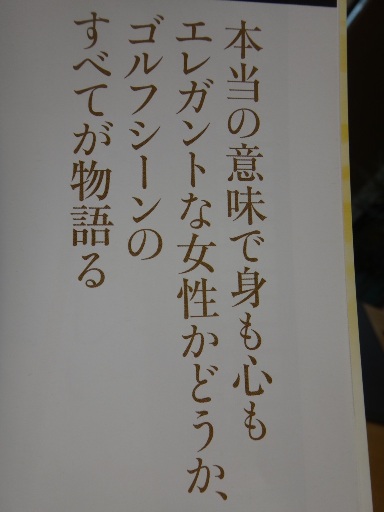 本当の意味で身も心も
エレガントな女性かどうか、
ゴルフシーンの
すべてが物語る